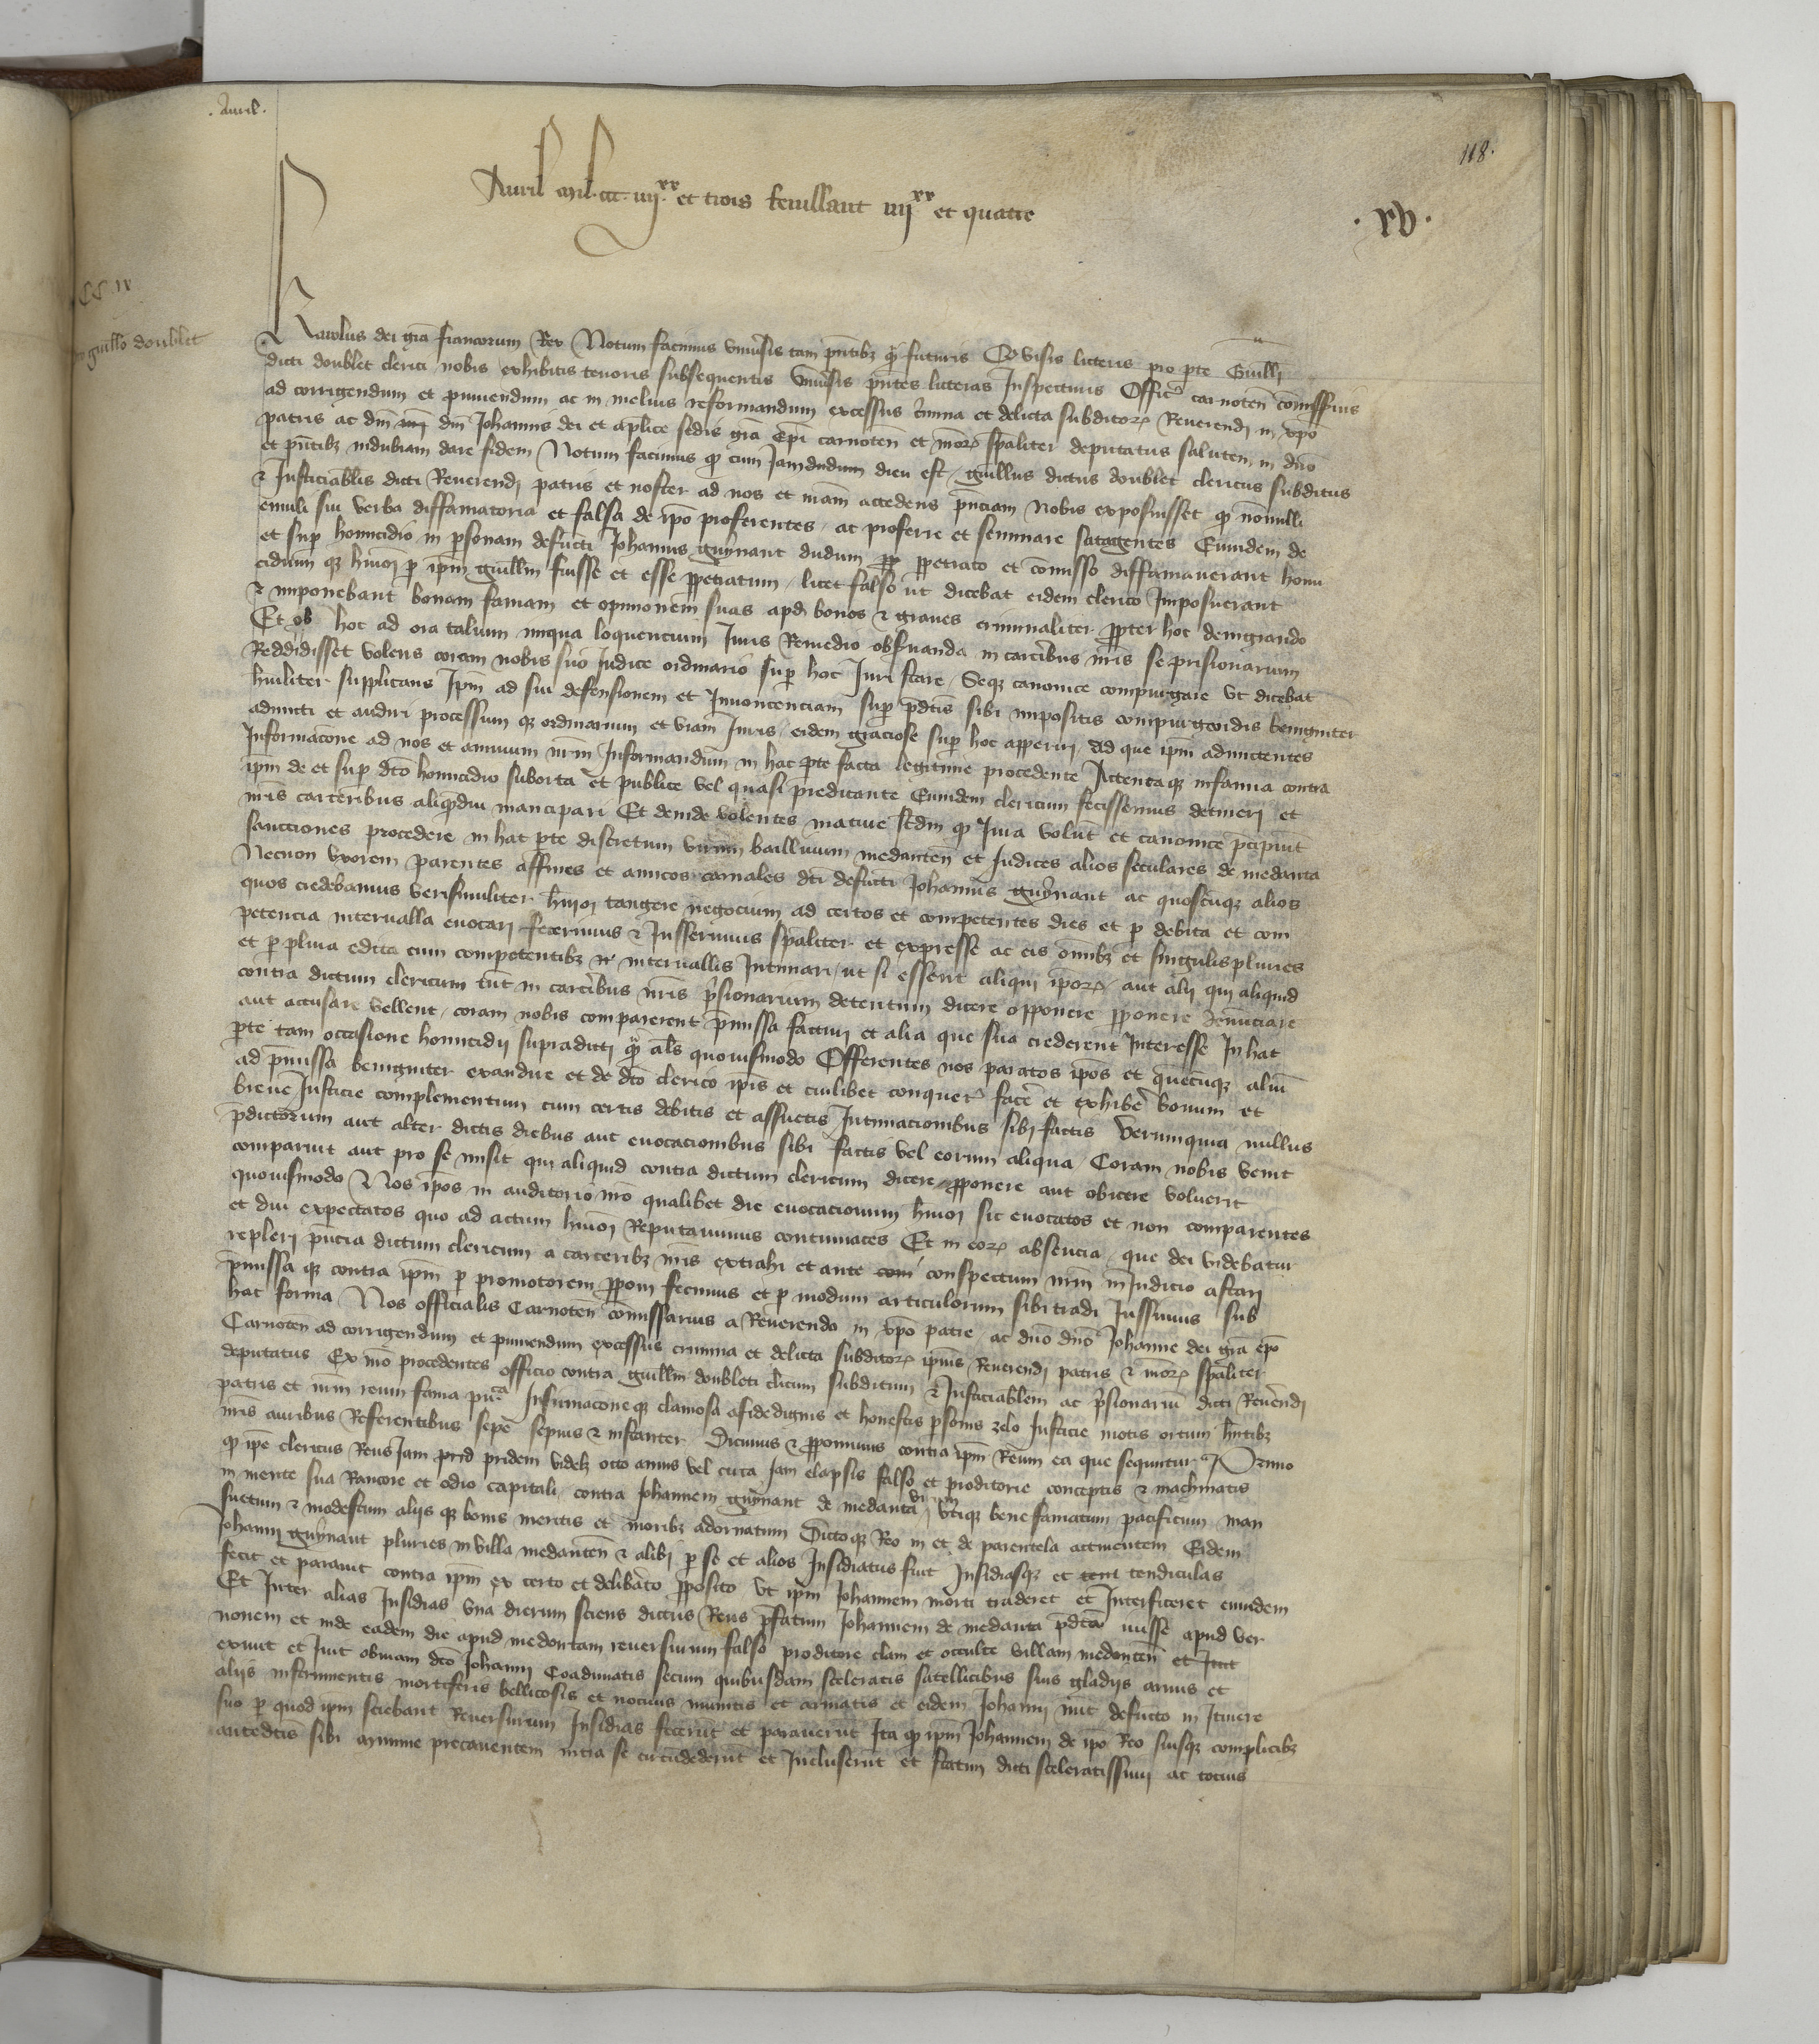 . Avril .
118.
Avril mil. ccc. iiij.xx et trois feuillant iiijxx et quatre
. xv .
CC iv
guillo doublet
Karolus dei grã francorum Rex Notum facimus vniũsis tam pñtibʒ qͣ̃ futuris Qͩ visis litteris pro pte Guilli
dicti doublet clerici nobis exhibitis tenoris subsequentis Vniũsis pñtes litteras Inspecturis Offic̃ carnoteñ cõmissarius
ad corrigendum et puniendum ac in melius reformandum excessus c̃mina et delicta subditorꝝ Reuerendi in xp̃o
patris ac dñi dñi Johannis dei et ap̃lice sedis grã ep̃i carnoteñ et ñrorꝝ sp̃aliter deputatus salutem in dño
et pñtibʒ indubiam dare fidem Notum facimus qͩ cum Jamdudum diu est / guillus dictus doublet clericus subditus
⁊ Justiciabilis dicti Reuerendi patris et noster ad nos et ñram accedens pñciam nobis exposuisset qͩ nõnulli
emuli sui verba diffamatoria et falsa de ip̃o proferentes / ac proferre et seminare satagentes Eumdem de
et sup̱ homicidio in p̱sonam defuncti Johannis guynant dudum pp̱ pp̱etrato et cõmisso diffamauerant homi
cidium qʒ hmõi p̱ ip̃m guillm fuisse et esse pp̱etratum / licet falso ut dicebat eidem clerico Imposuerant
⁊ imponebant bonam famam et opinionem suas apd̃ bonos ⁊ graues criminaliter pp̱ter hoc denigrando
Et ob hoc ad ora talium iniqua loquencium Juris Remedio obstruenda in carcẽbus ñris se prisionarium
Reddidisset volens coram nobis suo Judice ordinario sup̱ hoc Juri stare / Seqʒ canonice compurgare vt dicebat
huĩliter supplicans Ip̃m ad sui defensionem et Innocenciam sup̱ p̃dc̃is sibi impositis compurgandis benigniter
admitti et audiri processum qʒ ordinarium et viam Juris / eidem graciose sup̱ hoc apperiri / Ad que ip̃m admittentes
Informac̃one ad nos et animum ñrm Informandum in hac p̱te facta legitime procedente Attentaqʒ infamia contra
ip̃m de et sup̱ dc̃o homicidio suborta et publice vel quasi predicante Eumdem clericum fecissemus detineri et
ñris carceribus aliqͣdiu mancipari Et deinde volentes mature sc̃dm qͩ Jura volũt et canonice p̃cipiũt
sancciones procedere in hac p̱te discretum virum bailliuum medanteñ et Judices alios seculares de medanta
Necnon vxorem parentes affines et amicos carnales dc̃i defuncti Johannis guynant ac quoscũqʒ alios
quos credebamus verisimiliter hmõi tangere negocium ad certos et competentes dies et p̱ debita et com
petencia interualla euocari fecerimus ⁊ Jusserimus sp̃aliter et expresse ac eis om̃ibʒ et singulis pluries
et p̱ plura edicta cum competentibʒ interuallis Intimari / ut si essent aliqui ip̃orꝝ / aut alij qui aliquid
contra dictum clericum tũc in carcẽbus ñris p̃sionarium detentum dicere opponere pp̱onere denũciare
aut accusare vellent / coram nobis comparerent p̃missa facturi et alia que sua crederent Interesse In hac
p̱te tam occasione homicidij supradicti qͣ̃ al̃s quouismodo Offerentes nos paratos ip̃os et quencũqʒ aliũ
ad p̃missa benigniter exaudire et de dc̃o clerico ip̃is et cuilibet conquer̃ facẽ et exhibẽ bonum et
breue Justicie complementum cum certis debitis et assuetis Intimacionibus sibi factis Verumquia nullus
p̃dictorum aut alter dictis diebus aut euocacionibus sibi factis vel eorum aliqua / Coram nobis venit
comparuit aut pro se misit qui aliquid contra dictum clericum dicere / pp̱onere aut obicere voluerit
quouismodo Nos ip̃os in auditorio ñro qualibet die euocacionum hmõi sic euocatos et non comparentes
et diu expectatos quo ad actum hmõi Reputauimus contumaces Et in eorꝝ absencia / que dei videbatur
repleri pñcia dictum clericum a carceribʒ ñris extrahi et ante conspectum ñrm in Judicio astari
p̃missa qʒ contra ip̃m p̱ promotorem pp̱oni fecimus et p̱ modum articulorum sibi tradi Jussimus sub
hac forma Nos officialis Carnoteñ cõmissarius a Reuerendo in xp̃o patre ac dño dño Johanne dei grã ep̃o
Carnoteñ ad corrigendum et puniendum excessus crimina et delicta subditorꝝ ip̃ius Reuerendi patris ⁊ ñrorꝝ sp̃aliter
deputatus Ex ñro procedentes officio contra guillm doubleti clicum subditum ⁊ Justiciablem ac p̃sionariũ dicti Reuẽndi
patris et ñrm reum fama puca Infirmac̃oneqʒ clamosa a fidedignis et honestis p̱sonis zelo Justicie motis ortum hñtibʒ
ñris auribus Referentibus sepe sepius ⁊ instanter Dicimus ⁊ pp̱onimus contra ip̃m Reum ea que sequntur Primo
qͩ ip̃e clericus Reus Jam prid pridem videlʒ octo annis vel circa Jam elapsis falso et proditorie conceptis ⁊ machinatis
in mente sua Rancore et odio capitali / contra Johannem guynant de medanta virũ vtiqʒ bene famatum pacificum man
suetum ⁊ modestum aliis qʒ bonis meritis et moribʒ adornatum Dictoqʒ Reo in et de parentela attinentem Eidem
Johanni guynant pluries in villa medanteñ ⁊ alibi p̱ se et alios Insidiatus fuit Insidiasqʒ et tent tendiculas
fecit et parauit contra ip̃m ex certo et delibãto pp̱osito vt ip̃m Johannem morti traderet et Interficeret eumdem
Et Inter alias Insidias vna dierum sciens dictus Reus p̃fatum Johannem de medanta p̃dc̃a iuisse apud ver
nonem et inde eadem die apud medontam reuersurum falso proditore clam et occulte villam medonteñ et Iuit
exiuit et Iuit obuiam dc̃o Johanni Coadunatis secum quibusdam sceleratis satellitibus suis gladijs armis et
aliis instrumentis mortiferis bellicosis et nociuis munitis et armatis et eidem Johanni nũc defũcto in Itinere
suo p̱ quod ip̃m sciebant Reuersurum Insidias fecerũt et parauerũt Ita qͩ ip̃m Johannem de ip̃o Reo suisqʒ complicibʒ
antedc̃is sibi minime precauentem intra se circũdederũt et Incluserũt et statim dicti sceleratissimi ac tocius